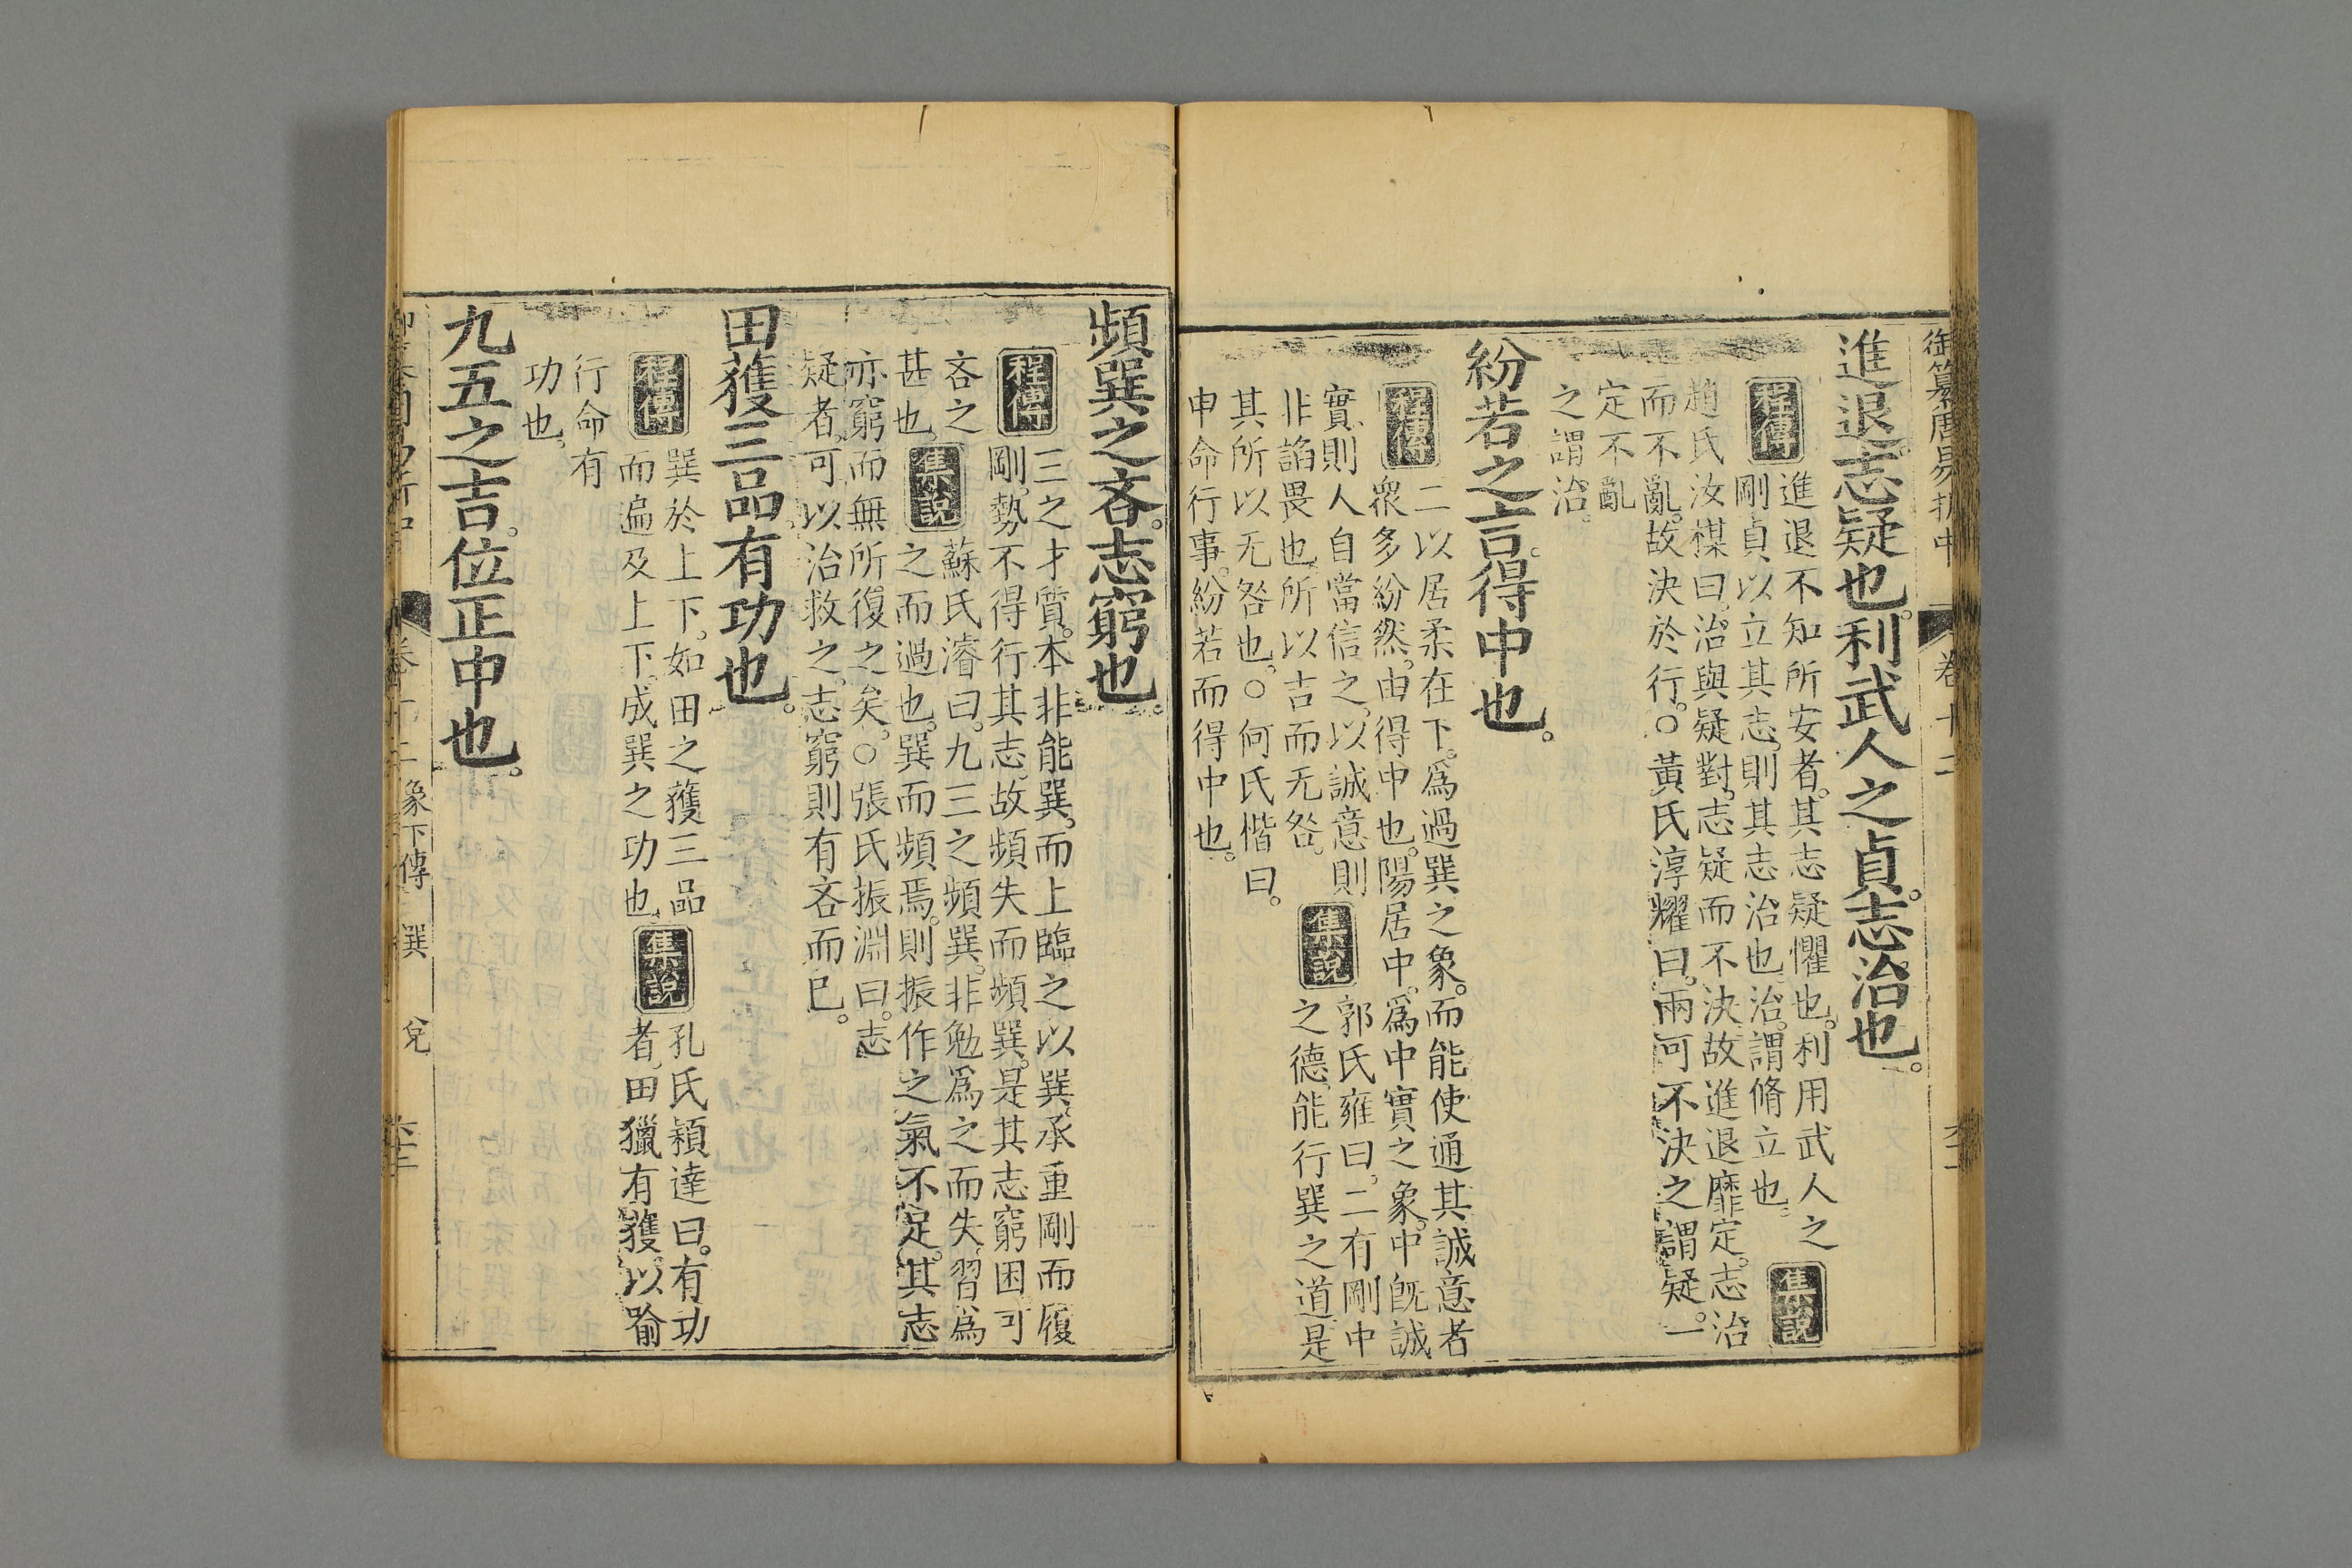 御纂周易折中 卷十二
進退。志疑也。利武人之貞。志治也。
程傳 進退不知所安者。其志疑懼也。利用武人之
剛貞以立其志。則其志治也。治。謂脩立也。 集說
趙氏汝楳曰。治與疑對。志疑而不決。故進退靡定。志治
而不亂。故決於行。○黃氏淳耀曰。兩可不決之謂疑。一
定不亂
之謂治。
紛若之吉。得中也。
程傳 二以居柔在下。爲過巽之象。而能使通其誠意者
衆多紛然。由得中也。陽居中。爲中實之象。中旣誠
實。則人自當信之。以誠意則
非諂畏也。所以吉而无咎。 集說 郭氏雍曰。二有剛中
之德。能行巽之道。是
其所以无咎也。○何氏楷曰。
申命行事。紛若而得中也。
頻巽之吝。志窮也。
程傳 三之才質。本非能巽。而上臨之以巽。承重剛而履
剛。勢不得行其志。故頻失而頻巽。是其志窮困。可
吝之
甚也。 集說 蘇氏濬曰。九三之頻巽。非勉爲之而失。習爲
之而過也。巽而頻焉。則振作之氣不足。其志
亦窮而無所復之矣。○張氏振淵曰。志
疑者。可以治救之。志窮則有吝而已。
田獲三品。有功也。
程傳 巽於上下。如田之獲三品
而遍及上下。成巽之功也。 集說 孔氏穎達曰。有功
者。田獵有獲。以喻
行命有
功也。
九五之吉。位正中也。
卷十二 象下傳 巽 兌 六十二